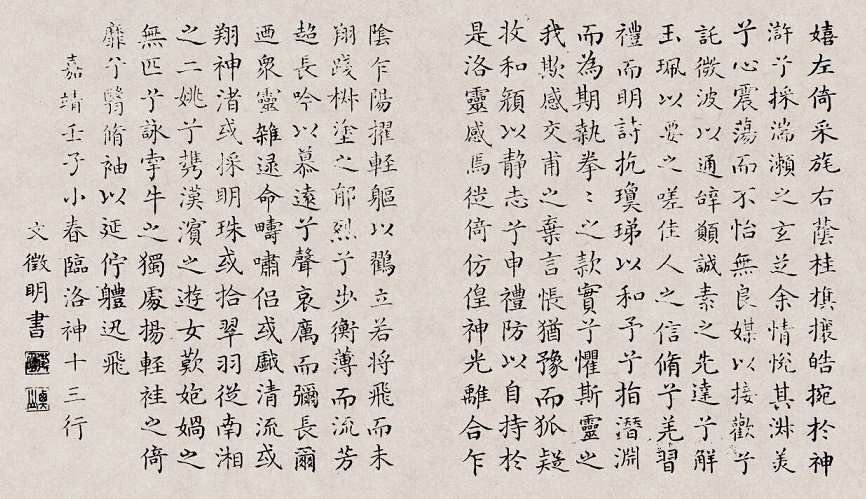 嬉左倚采旄右蔭桂旗攘皓捥於神
滸兮採湍瀨之玄芝余情悅其淋美
兮心震蕩而不怡無良媒以接歡兮
託微波以通辭願誠素之先達兮解
玉珮以要之嗟佳人之信脩兮羌習
禮而明詩抗瓊珶以和予兮指潛淵
而為期執拳〻之款實兮懼斯靈之
我欺感交甫之棄言悵猶豫而狐疑
收和顏以静志兮申禮防以自持於
是洛靈感焉徙倚仿偟神光離合乍
陰乍陽擢輕軀以鶴立若將飛而未
翔踐椒塗之郁烈兮步衡薄而流芳
超長吟以慕遠兮聲哀厲而彌長爾
迺衆靈雜遝命疇嘯侶或戲清流或
翔神渚或採明珠或拾翠羽從南湘
之二姚兮攜漢濱之遊女歎匏媧之
無匹兮詠牽牛之獨處揚輕袿之倚
靡兮翳脩袖以延佇軆迅飛
嘉靖壬子小春臨洛神十三行
文徵明書